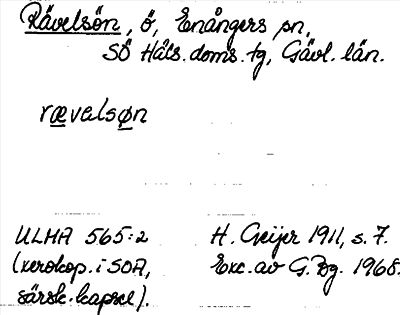 Rävelsön, ö, Enångers sn,
SÖ Häls. doms. tg, Gävl. län.
rævalsøn
ULMA 565:2
(xerokop. i SOA,
särsk. kapsel).
H. Geijer 1911, s. 7.
Exc. av G. Bg. 1968.